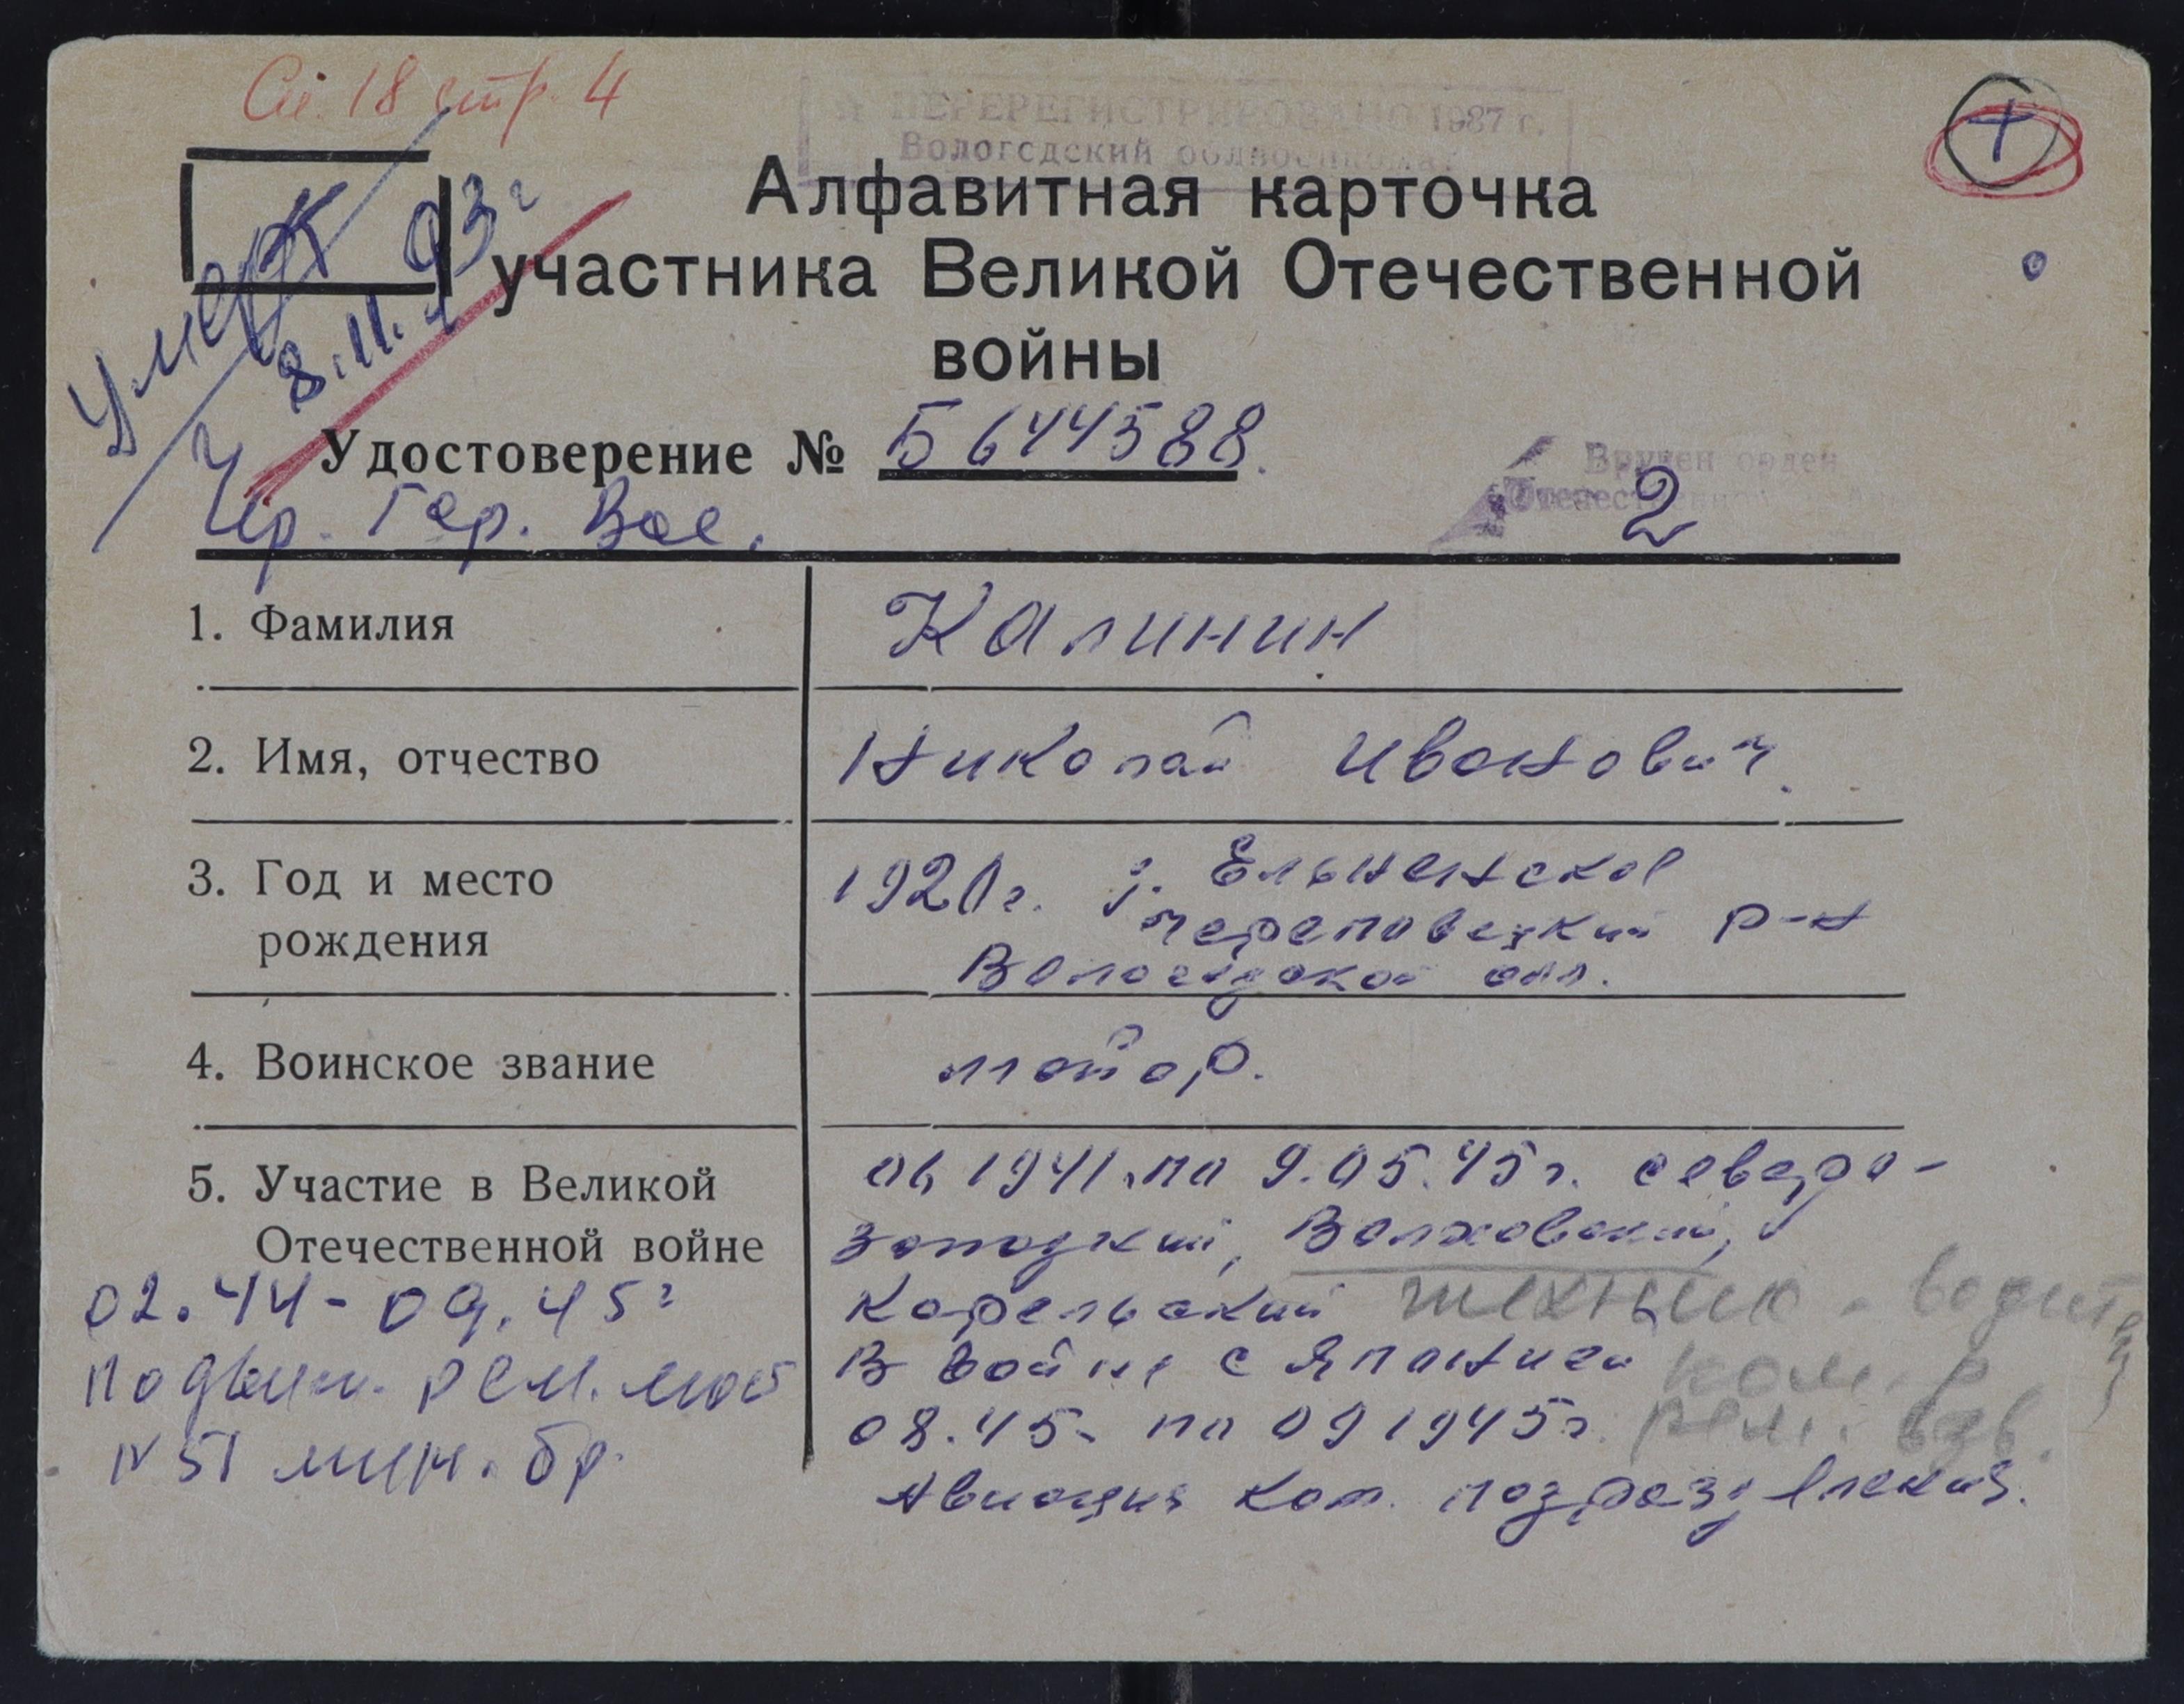 Сп. 18 стр. 4
ПЕРЕРЕГИСТРИРОВАНО 1987 г.
Вологодский облвоенкомат
+
умер
8.11.93г
Алфавитная карточка
участника Великой Отечественной
войны
Удостоверение № Б 644588.
Вручен орден
Отечественной
2
Чер. Гор. Вое.
1. Фамилия
Калинин
2. Имя, отчество
Николай Иванович.
3. Год и место
рождения
1920г. Ельненское
Череповецкий р-н
Вологодской обл.
4. Воинское звание
майор.
5. Участие в Великой
Отечественной войне
06 1941 по 9.05.45г. северо-
западный, Волховский,
Карельский техник-водит
В войне с Японией ком-р
08.45 по 09 1945г. рем. взв.
Авиация ком. подразделения.
02.44-09.45г
подвиж. рем.
№ 51 мин. бр.